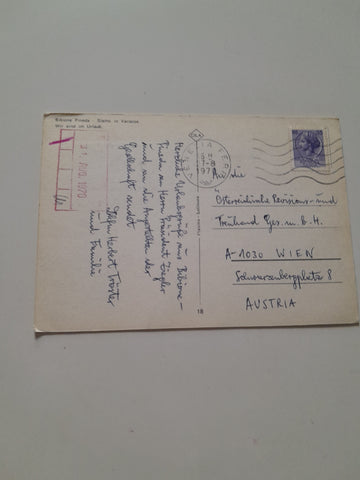 Bibione Pineda - Siamo in Vacanza
Wir sind im Urlaub.
Herzliche Urlaubsgrüße aus Bibione-
Pineda an Herrn Präsident Ziegler
und an die Angestellten der
Gesellschaft sendet
Herbert Tröster
und Familie
AUG. 1970
An die
Österreichische Revisions- und
Treuhand Ges. m. b. H.
A-1030 WIEN
Schwarzenbergplatz 8
AUSTRIA
18